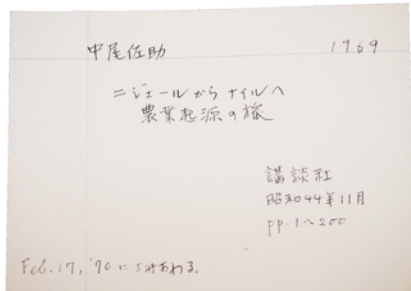 中尾佐助 1969
ニジェールからナイルへ
農業起源の旅
講談社
昭和44年11月
pp.1~200
Feb.17,'70によみおわる.